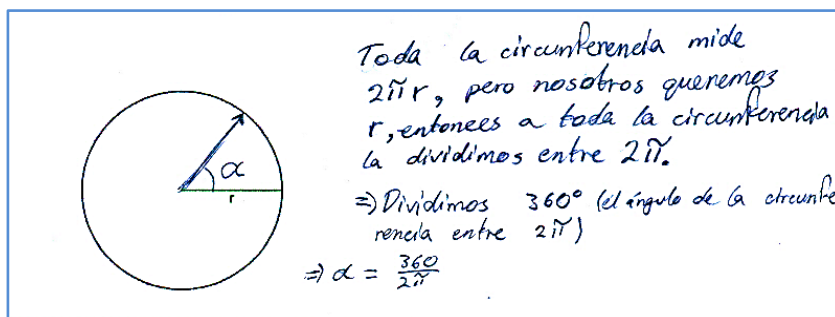 Toda la circunferencia mide
2πr, pero nosotros queremos
r, entonces a toda la circunferencia
la dividimos entre 2π.
⇒) Dividimos 360° (el ángulo de la circunfe
rencia entre 2π)
⇒ α = 360/2π
α
r